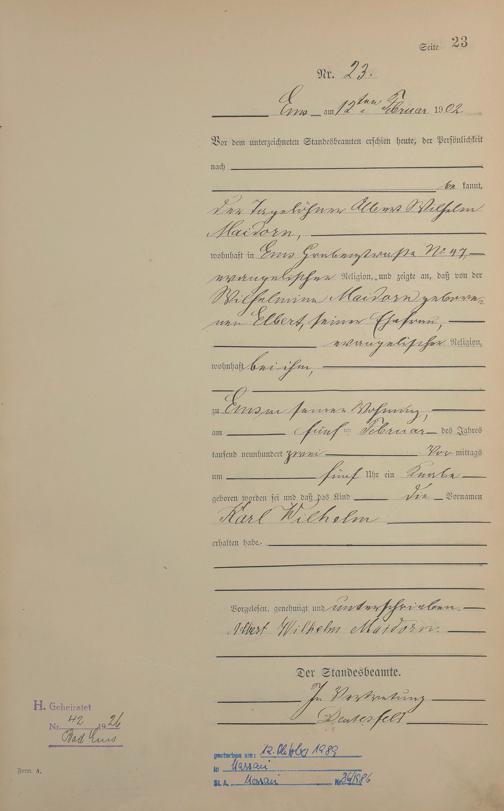 Seite 23
Nr. 23.
Ems am 12ten Februar 1902
Vor dem unterzeichneten Standesbeamten erschien heute, der Persönlichkeit
nach
be kannt,
der Tagelöhner Albert Wilhelm
Maidorn,
wohnhaft in Ems Grabenstraße No 47,
evangelischer Religion, und zeigte an, daß von der
Wilhelmine Maidorn gebore-
nen Elbert, seiner Ehefrau,
evangelischer Religion,
wohnhaft bei ihm,
zu Ems in seiner Wohnung,
am fünf Februar des Jahres
tausend neunhundert zwei Vor mittags
um fünf Uhr ein Knabe
geboren worden sei und daß das Kind die Vornamen
Karl Wilhelm
erhalten habe.
Vorgelesen, genehmigt und unterschrieben.
Albert Wilhelm Maidorn.
Der Standesbeamte.
In Vertretung
H. Geheiratet
Nr. 42 1926
Bad Ems
Form. A.
gestorben am: 12. Oktober
in Nassau
St. A. Nassau